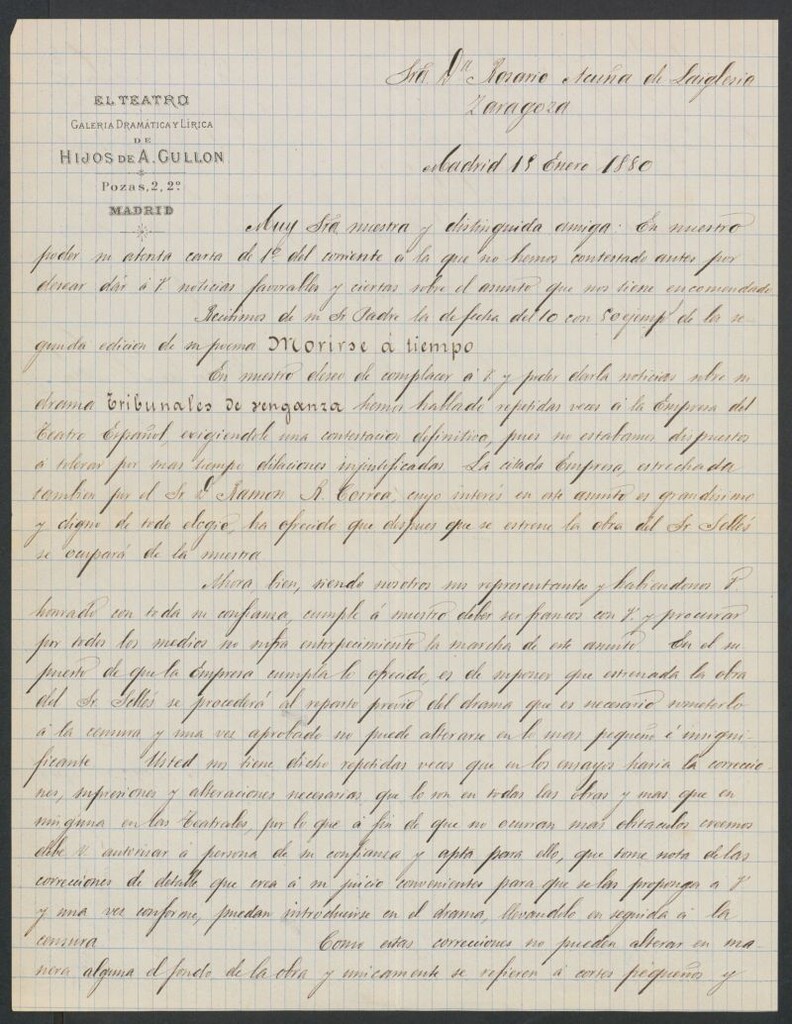 EL TEATRO
GALERIA DRAMÁTICA Y LÍRICA
DE
HIJOS DE A. GULLON
Pozas, 2, 2º
MADRID
Sra Dª Rosario Acuña de Laiglesia
Zaragoza
Madrid 19 Enero 1880
Muy Sra nuestra y distinguida amiga: En nuestro
poder su atenta carta de 1º del corriente á la que no hemos contestado antes por
desear dár á V noticias favorables y ciertas sobre el asunto que nos tiene encomendado
Recibimos de su Sr Padre la de fecha del 10 con 50 ejempˢ de la se-
gunda edicion de su poema Morirse á tiempo
En nuestro deseo de complacer á V. y poder darla noticias sobre su
drama Tribunales de venganza hemos hablado repetidas veces á la Empresa del
Teatro Español exigiendole una contestacion definitiva, pues no estabamos dispuestos
á tolerar por mas tiempo dilaciones injustificadas. La citada Empresa, estrechada
tambien por el Sr D. Ramon R. Correa, cuyo interés en este asunto es grandisimo
y digno de todo elogio, ha ofrecido que despues que se estrene la obra del Sr Sellés
se ocupará de la nuestra
Ahora bien, siendo nosotros sus representantes y habiendonos V
honrado con toda su confianza, cumple á nuestro deber ser francos con V. y procurar
por todos los medios no sufra entorpecimiento la marcha de este asunto En el su-
puesto de que la Empresa cumpla lo ofrecido, es de suponer que estrenada la obra
del Sr. Sellés se procederá al reparto previo del drama que es necesario someterlo
á la censura y una vez aprobado no puede alterarse en lo mas pequeño é insigni-
ficante Usted nos tiene dicho repetidas veces que en los ensayos haria las correccio-
nes, supresiones y alteraciones necesarias, que lo son en todas las obras y mas que en
ninguna en las Teatrales, por lo que á fin de que no ocurran mas obstaculos creemos
debe V. autorizar á persona de su confianza y apta para ello, que tome nota de las
correcciones de detalle que crea á su juicio convenientes para que se las proponga á V
y una vez conforme, puedan introducirse en el drama, llevandolo en seguida á la
censura Como estas correcciones no pueden alterar en ma-
nera alguna el fondo de la obra y unicamente se refieren á cortes pequeños y